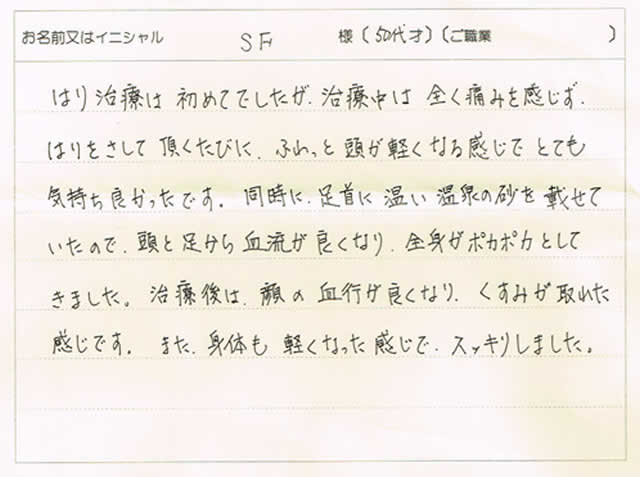 お名前又はイニシャル SF 様（50代才）（ご職業 ）
はり治療は初めてでしたが、治療中は全く痛みを感じず、
はりをさして頂くたびに、ふわっと頭が軽くなる感じでとても
気持ち良かったです。同時に、足首に温い温泉の砂を載せて
いたので、頭と足から血流が良くなり、全身がポカポカとして
きました。治療後は、顔の血行が良くなり、くすみが取れた
感じです。また、身体も軽くなった感じで、スッキリしました。